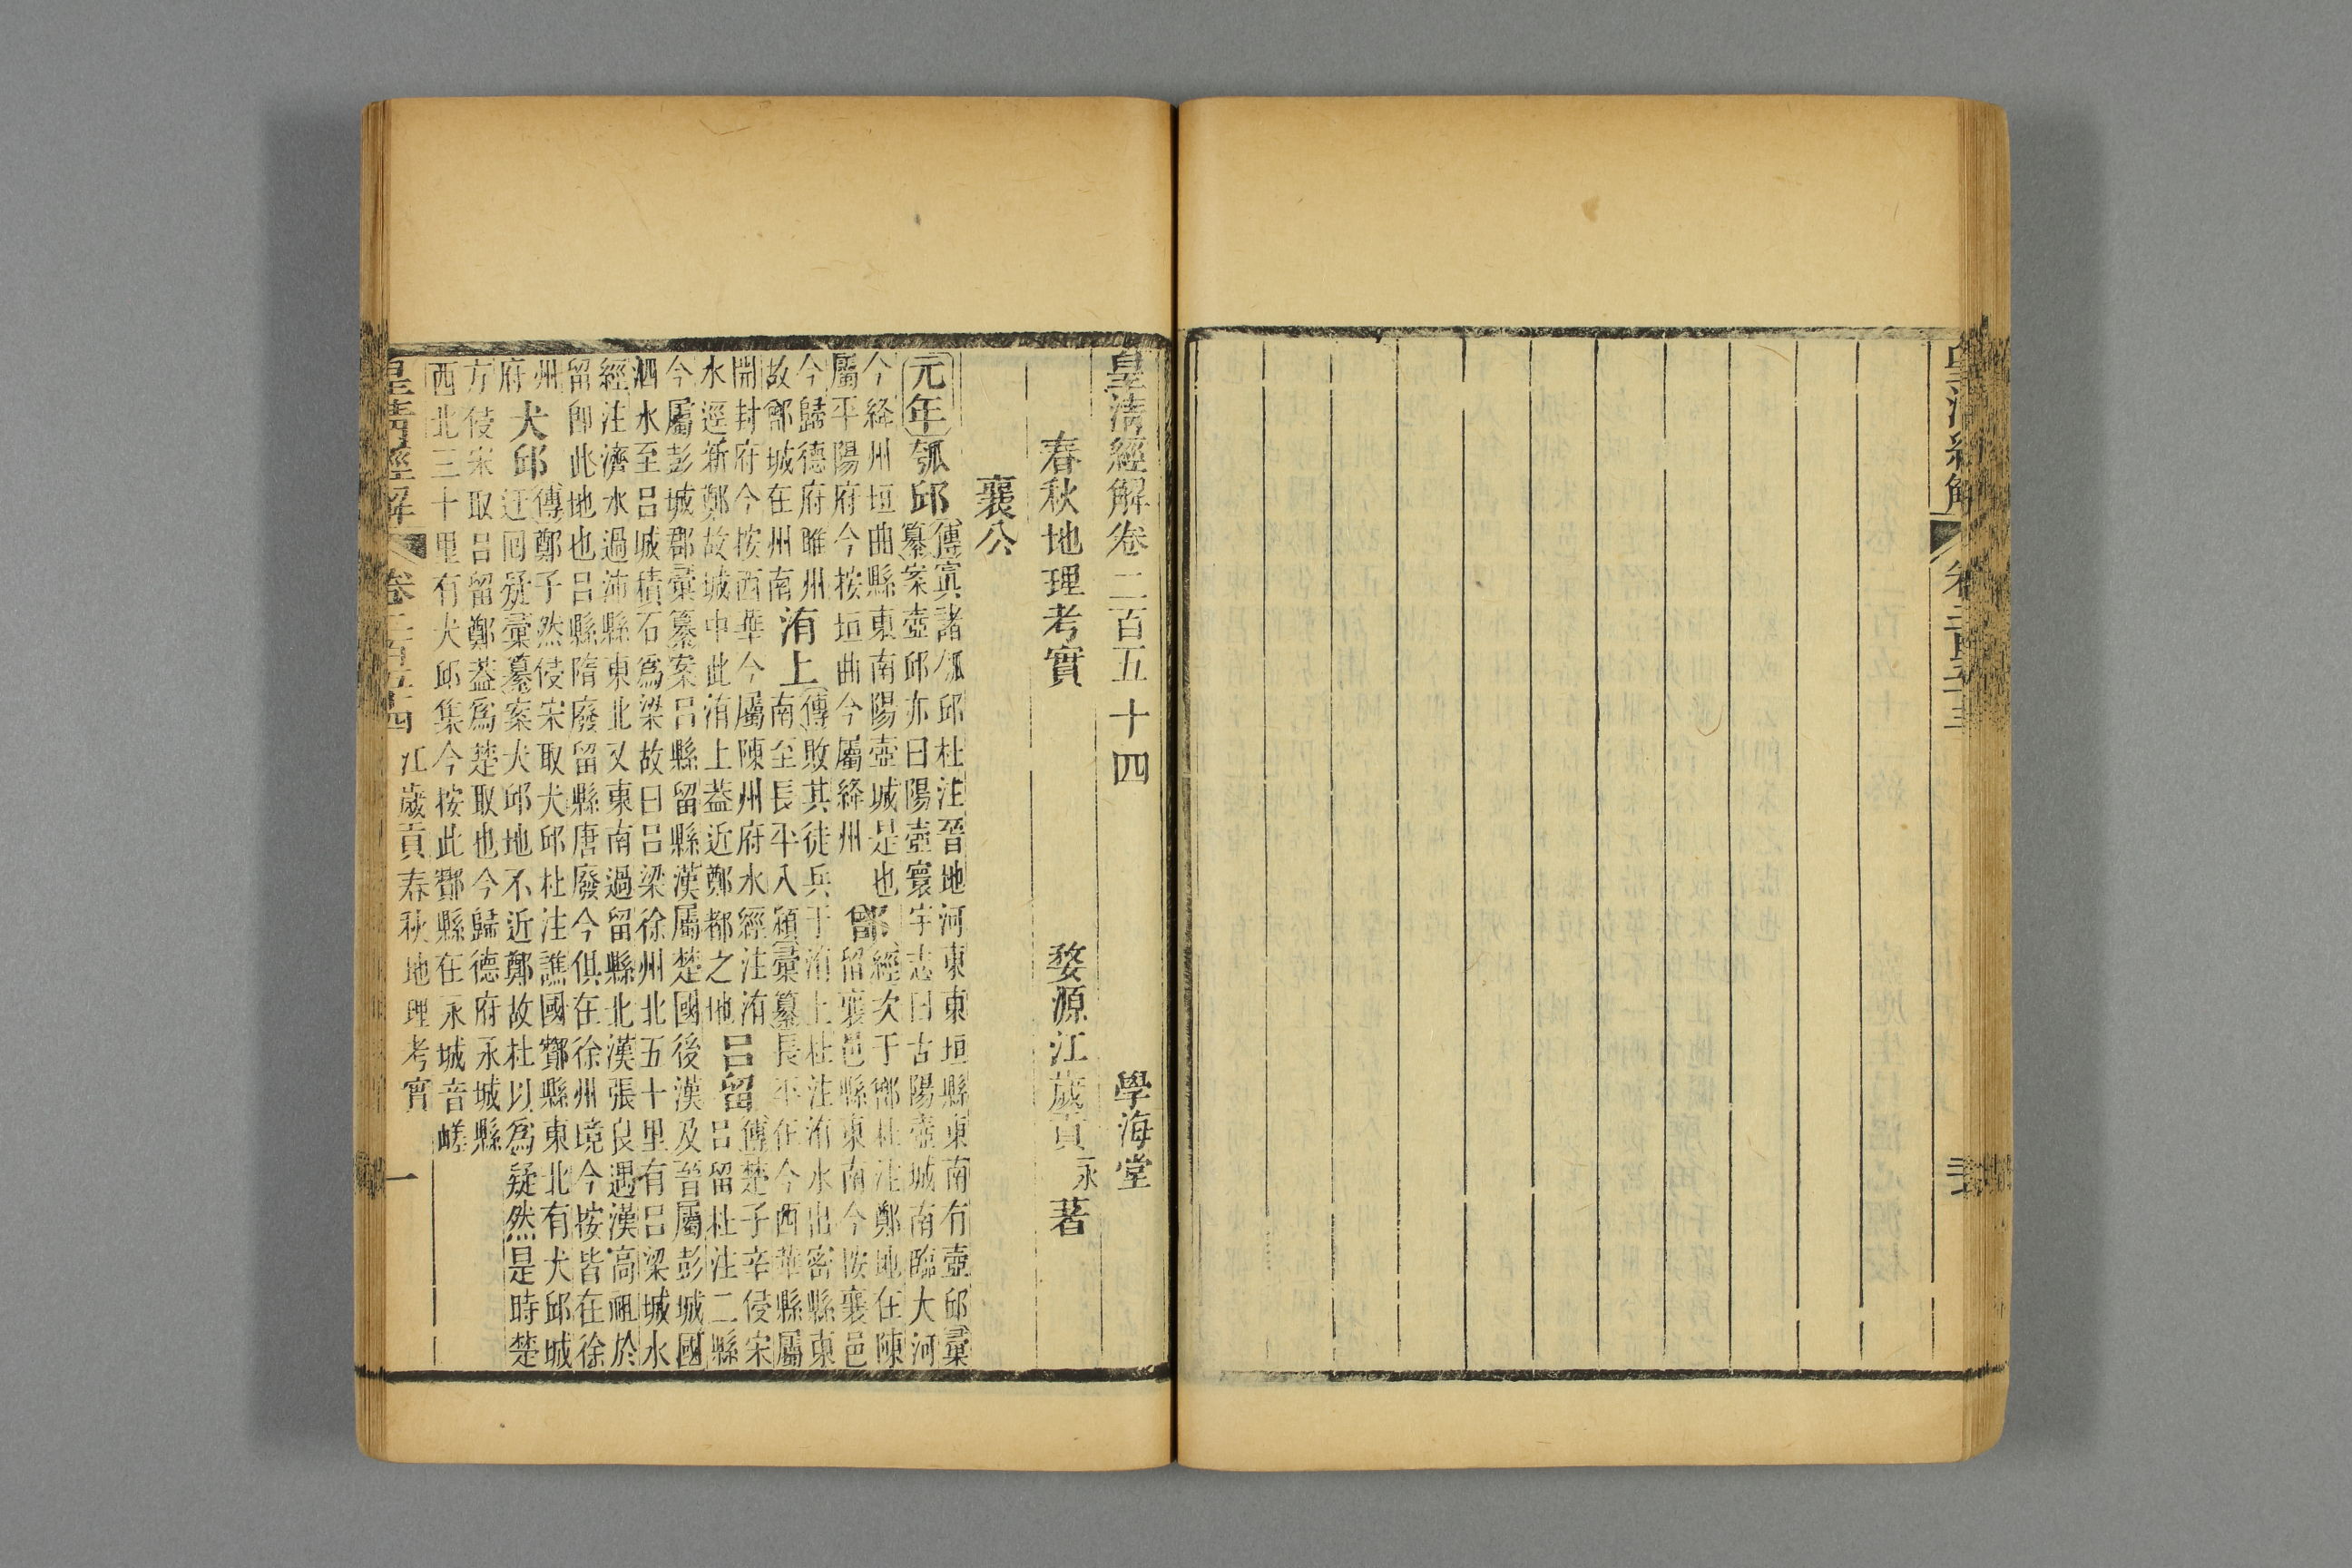 皇清經解 卷二百五十三
皇清經解卷二百五十四 學海堂
春秋地理考實 婺源江歲貢永著
襄公
元年 瓠邱 傳寘諸瓠邱杜注晉地河東東垣縣東南有壺邱彙
纂案壺邱亦曰陽壺寰宇志曰古陽壺城南臨大河
今絳州垣曲縣東南陽壺城是也
屬平陽府今按垣曲今屬絳州 鄫 經次于鄫杜注鄭地在陳
留襄邑縣東南今按襄邑
今歸德府睢州
故鄫城在州南 洧上 傳敗其徒兵于洧上杜注洧水出密縣東
南至長平入潁彙纂長平在今西華縣屬
開封府今按西華今屬陳州府水經注洧
水逕新鄭故城中此洧上蓋近鄭都之地 呂留 傳楚子辛侵宋
呂留杜注二縣
今屬彭城郡彙纂案呂縣留縣漢屬楚國後漢及晉屬彭城國
泗水至呂城積石爲梁故曰呂梁徐州北五十里有呂梁城水
經注濟水過沛縣東北又東南過留縣北漢張良遇漢高祖於
留卽此地也呂縣隋廢留縣唐廢今俱在徐州境今按皆在徐
州
府 犬邱 傳鄭子然侵宋取犬邱杜注譙國酇縣東北有犬邱城
迂囘疑彙纂案犬邱地不近鄭故杜以爲疑然是時楚
方侵宋取呂留鄭蓋爲楚取也今歸德府永城縣
西北三十里有犬邱集今按此酇縣在永城音嵯
皇清經解 卷二百五十四 江歲貢春秋地理考實 一